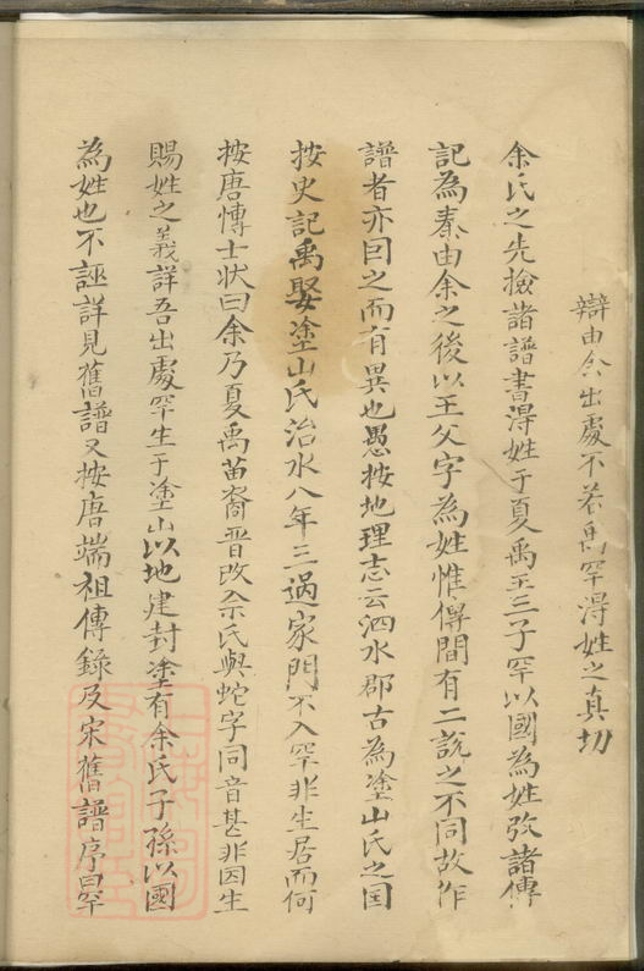 辯由余出處不若禹罕得姓之真切
余氏之先撿諸譜書得姓于夏禹王三子罕以國為姓攷諸傳
記為秦由余之後以王父字為姓惟傳間有二說之不同故作
譜者亦因之而有異也愚按地理志云泗水郡古為塗山氏之国
按史記禹娶塗山氏治水八年三過家門不入罕非生居而何
按唐愽士状曰余乃夏禹苗裔晋改余氏與蛇字同音甚非因生
賜姓之義詳吾出處罕生于塗山以地建封塗有余氏子孫以國
為姓也不誣詳見舊譜又按唐端祖傳錄及宋舊譜序曰罕